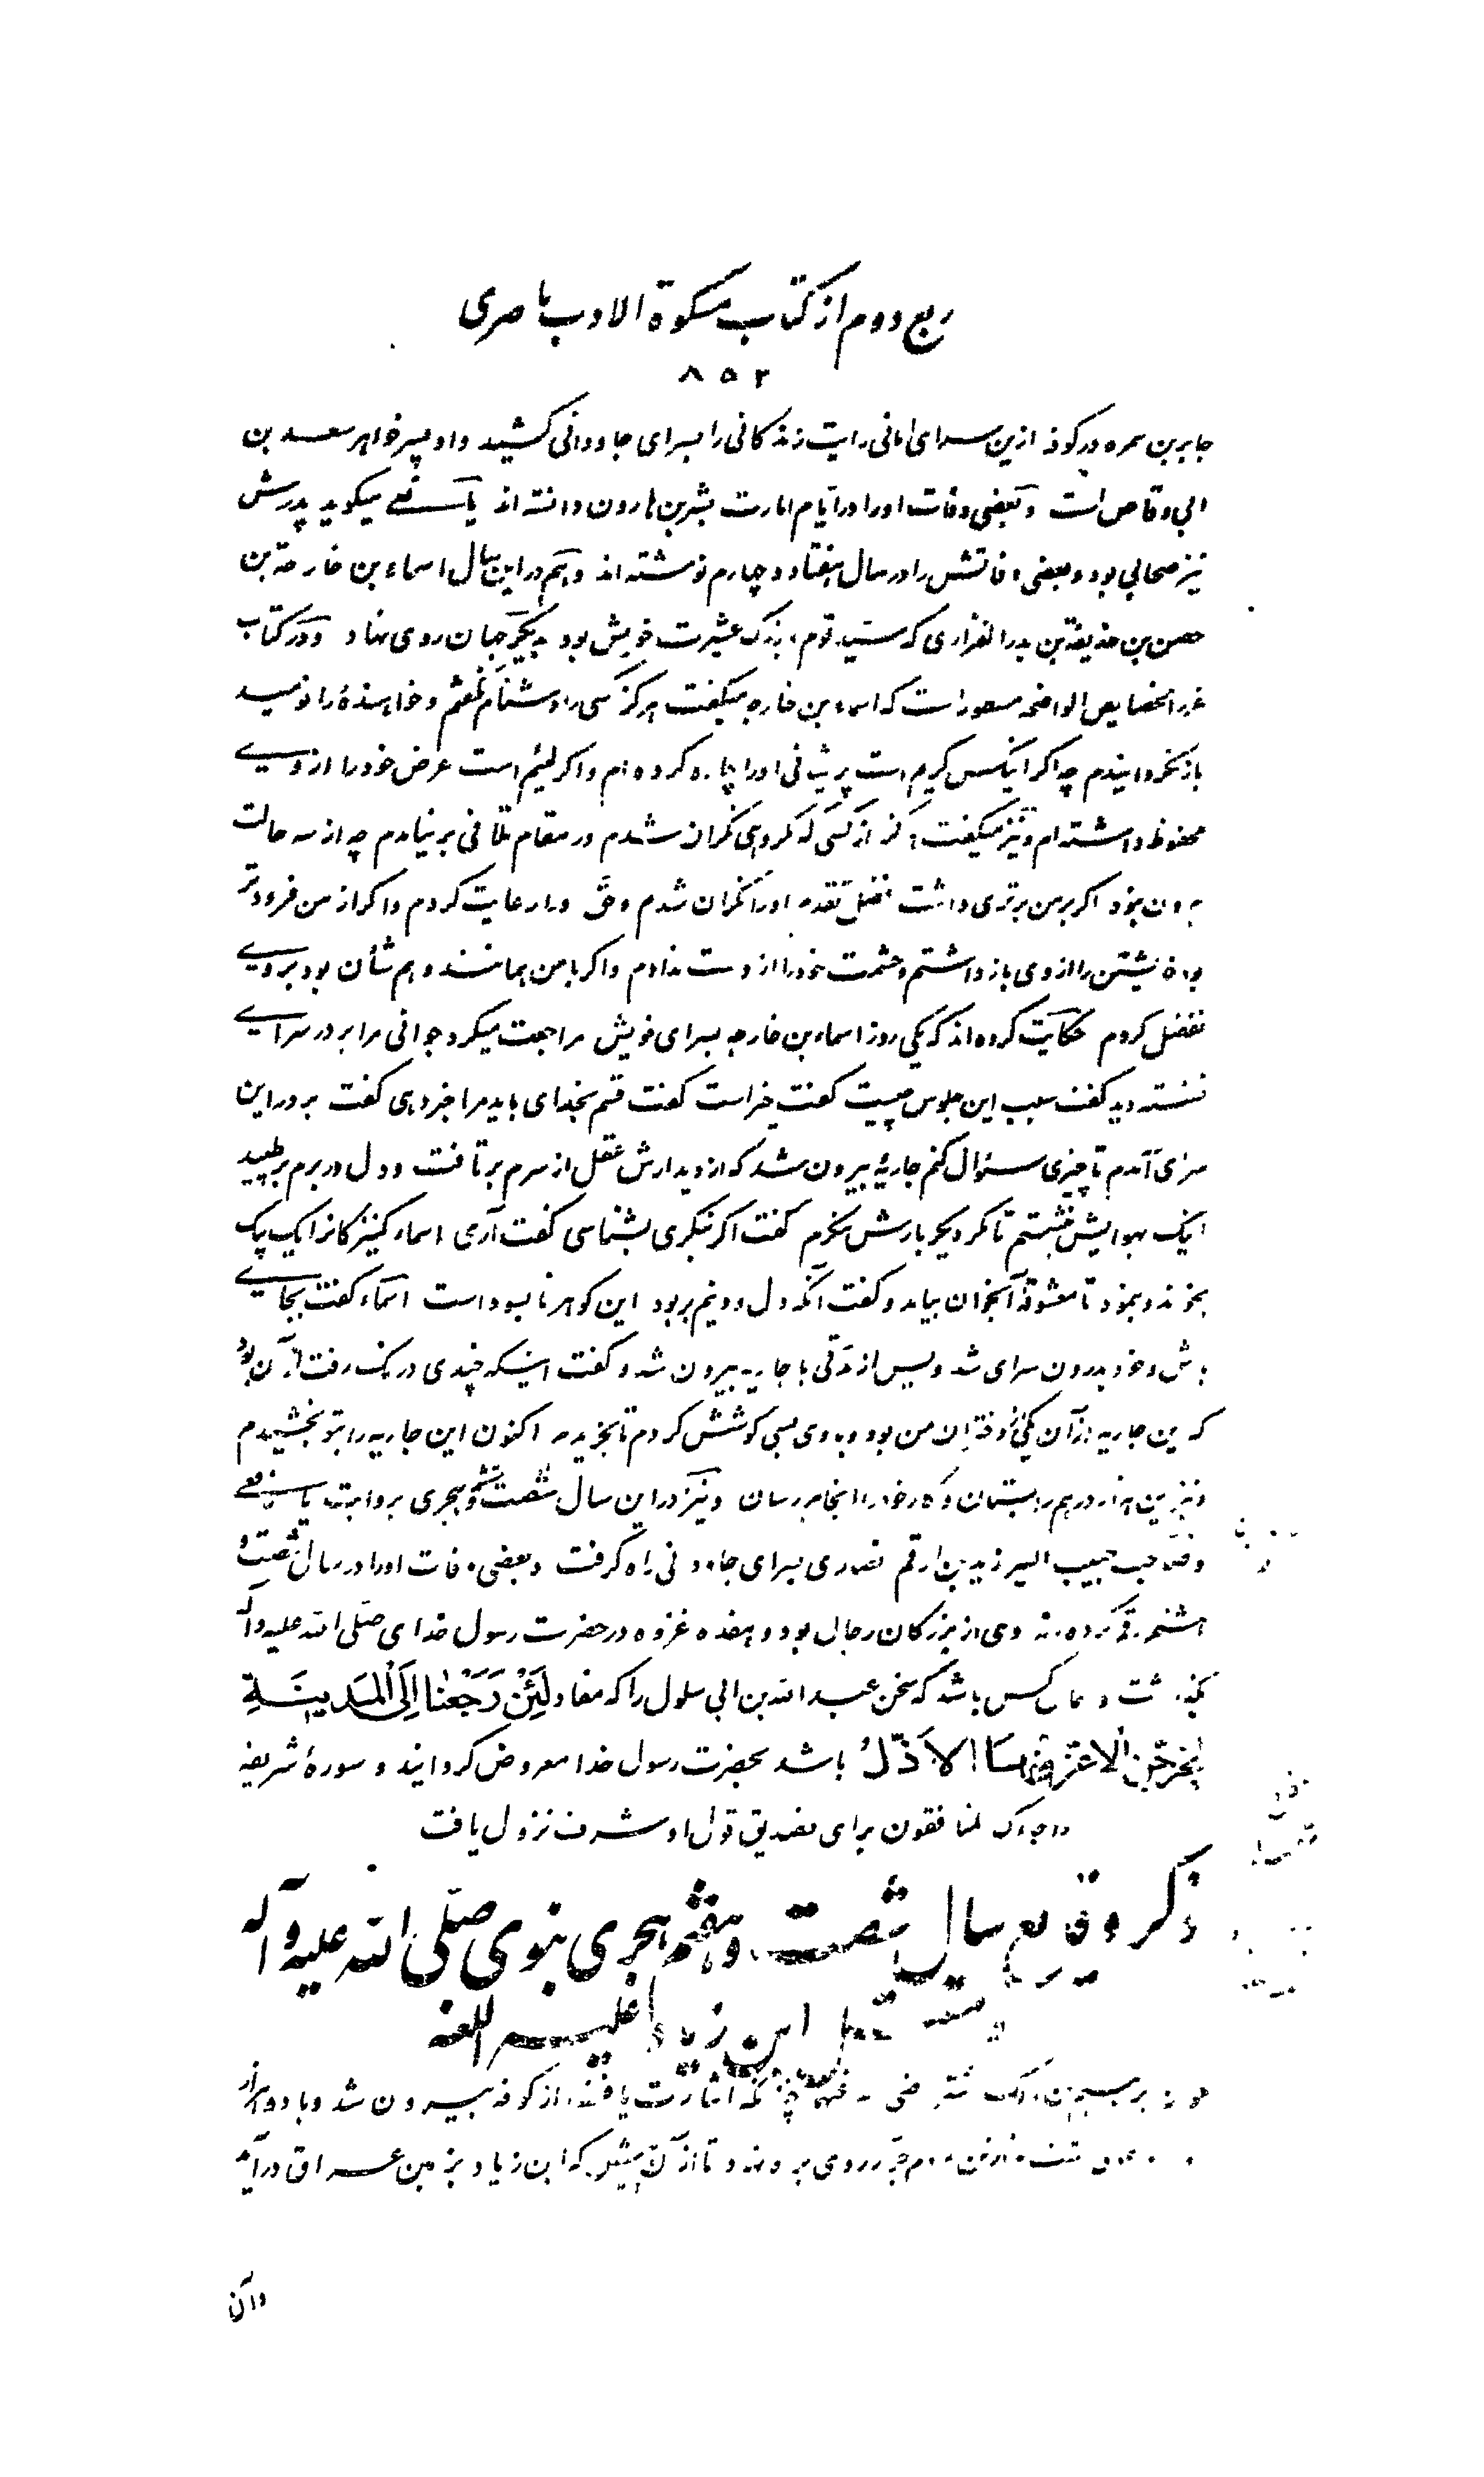 ربع دوم از کتاب مشکوة الادب ناصری
۸۵۲
جابر بن سمره در کوفه ازین سرای امانی رایت زندگانی را بسرای جاودانی کشید و او پسر خواهر سعد بن
ابی وقاص است و بعضی وفات او را در ایام امارت بشر بن هارون دانسته اند یافعی میگوید پدرش
نیز صحابی بود و بعضی وفاتش را در سال هفتاد و چهارم نوشته اند و هم در این سال اسماء بن خارجة بن
حصن بن حذیفة بن بدر الفزاری که سید قوم و بزرگ عشیرت خویش بود بدیگر جهان روی نهاد و در کتاب
غرر الخصایص الواضحه مسطور است که اسماء بن خارجه میگفت هرگز کسی را دشنام نگفتم و خواهندهٔ را نومید
باز نگردانیدم چه اگر آنکس کریم است پریشانی او را چاره کرده ام و اگر لئیم است عرض خود را از وی
محفوظ داشته ام و نیز میگفت هرگز از کسی که مکروهی نگران شدم در مقام تلافی برنیامدم چه از سه حالت
بیرون نبود اگر بر من برتری داشت فضل تقدم او را نگران شدم و حق او را رعایت کردم و اگر از من فرودتر
بود خویشتن را از وی باز داشتم و حشمت خود را از دست ندادم و اگر با من همانند و هم شأن بود بر وی
تفضل کردم حکایت کرده اند که یکی روز اسماء بن خارجه بسرای خویش مراجعت میکرد جوانی را بر در سرای
نشسته دید گفت سبب این جلوس چیست گفت خیر است گفت قسم بخدای باید مرا خبر دهی گفت بر در این
سرای آمدم تا چیزی سئوال کنم جاریهٔ بیرون شد که از دیدارش عقل از سرم برتافت و دل در برم برطپید
اینک بهوایش نشستم تا مگر دیگر بارش نگرم گفت اگر بنگری بشناسی گفت آری اسماء کنیزکان را یک یک
بخواند و بنمود تا معشوقهٔ آنجوان بیامد و گفت آنکه دل و دینم بربود این گوهر نابسود است اسماء گفت بجای
باش و خود بدرون سرای شد و پس از مدتی با جاریه بیرون شد و گفت اینکه چندی درنگ رفت از آن بود
که این جاریه از آن یکی از دختران من بود و با وی بسی کوشش کردم تا بخریدم اکنون این جاریه را بتو بخشیدم
و نیز این هزار درهم را بستان و کار خود را انجام برسان و نیز در این سال شصت و ششم هجری بروایت یافعی
و صاحب حبیب السیر زید بن ارقم انصاری بسرای جاودانی راه گرفت و بعضی وفات او را در سال شصت و
هشتم رقم کرده اند وی از بزرگان رجال بود و هفده غزوه در حضرت رسول خدای صلی الله علیه و آله
بگذاشت و همان کس باشد که سخن عبد الله بن ابی سلول را که مفاد لَئِنْ رَجَعْنا اِلَی الْمَدینَةِ
لَیُخْرِجَنَّ الْاَعَزُّ مِنْهَا الْاَذَلَّ باشد بحضرت رسول خدا معروض گردانید و سورهٔ شریفه
اذا جاءک المنافقون برای تصدیق قول او شرف نزول یافت
ذکر وقایع سال شصت و هفتم هجری نبوی صلی الله علیه و آله
و مقتل ابن زیاد علیه اللعنه
از کوفه بیرون شد و با دو هزار
تا از آن پیش که ابن زیاد بزمین عراق درآید
و آن